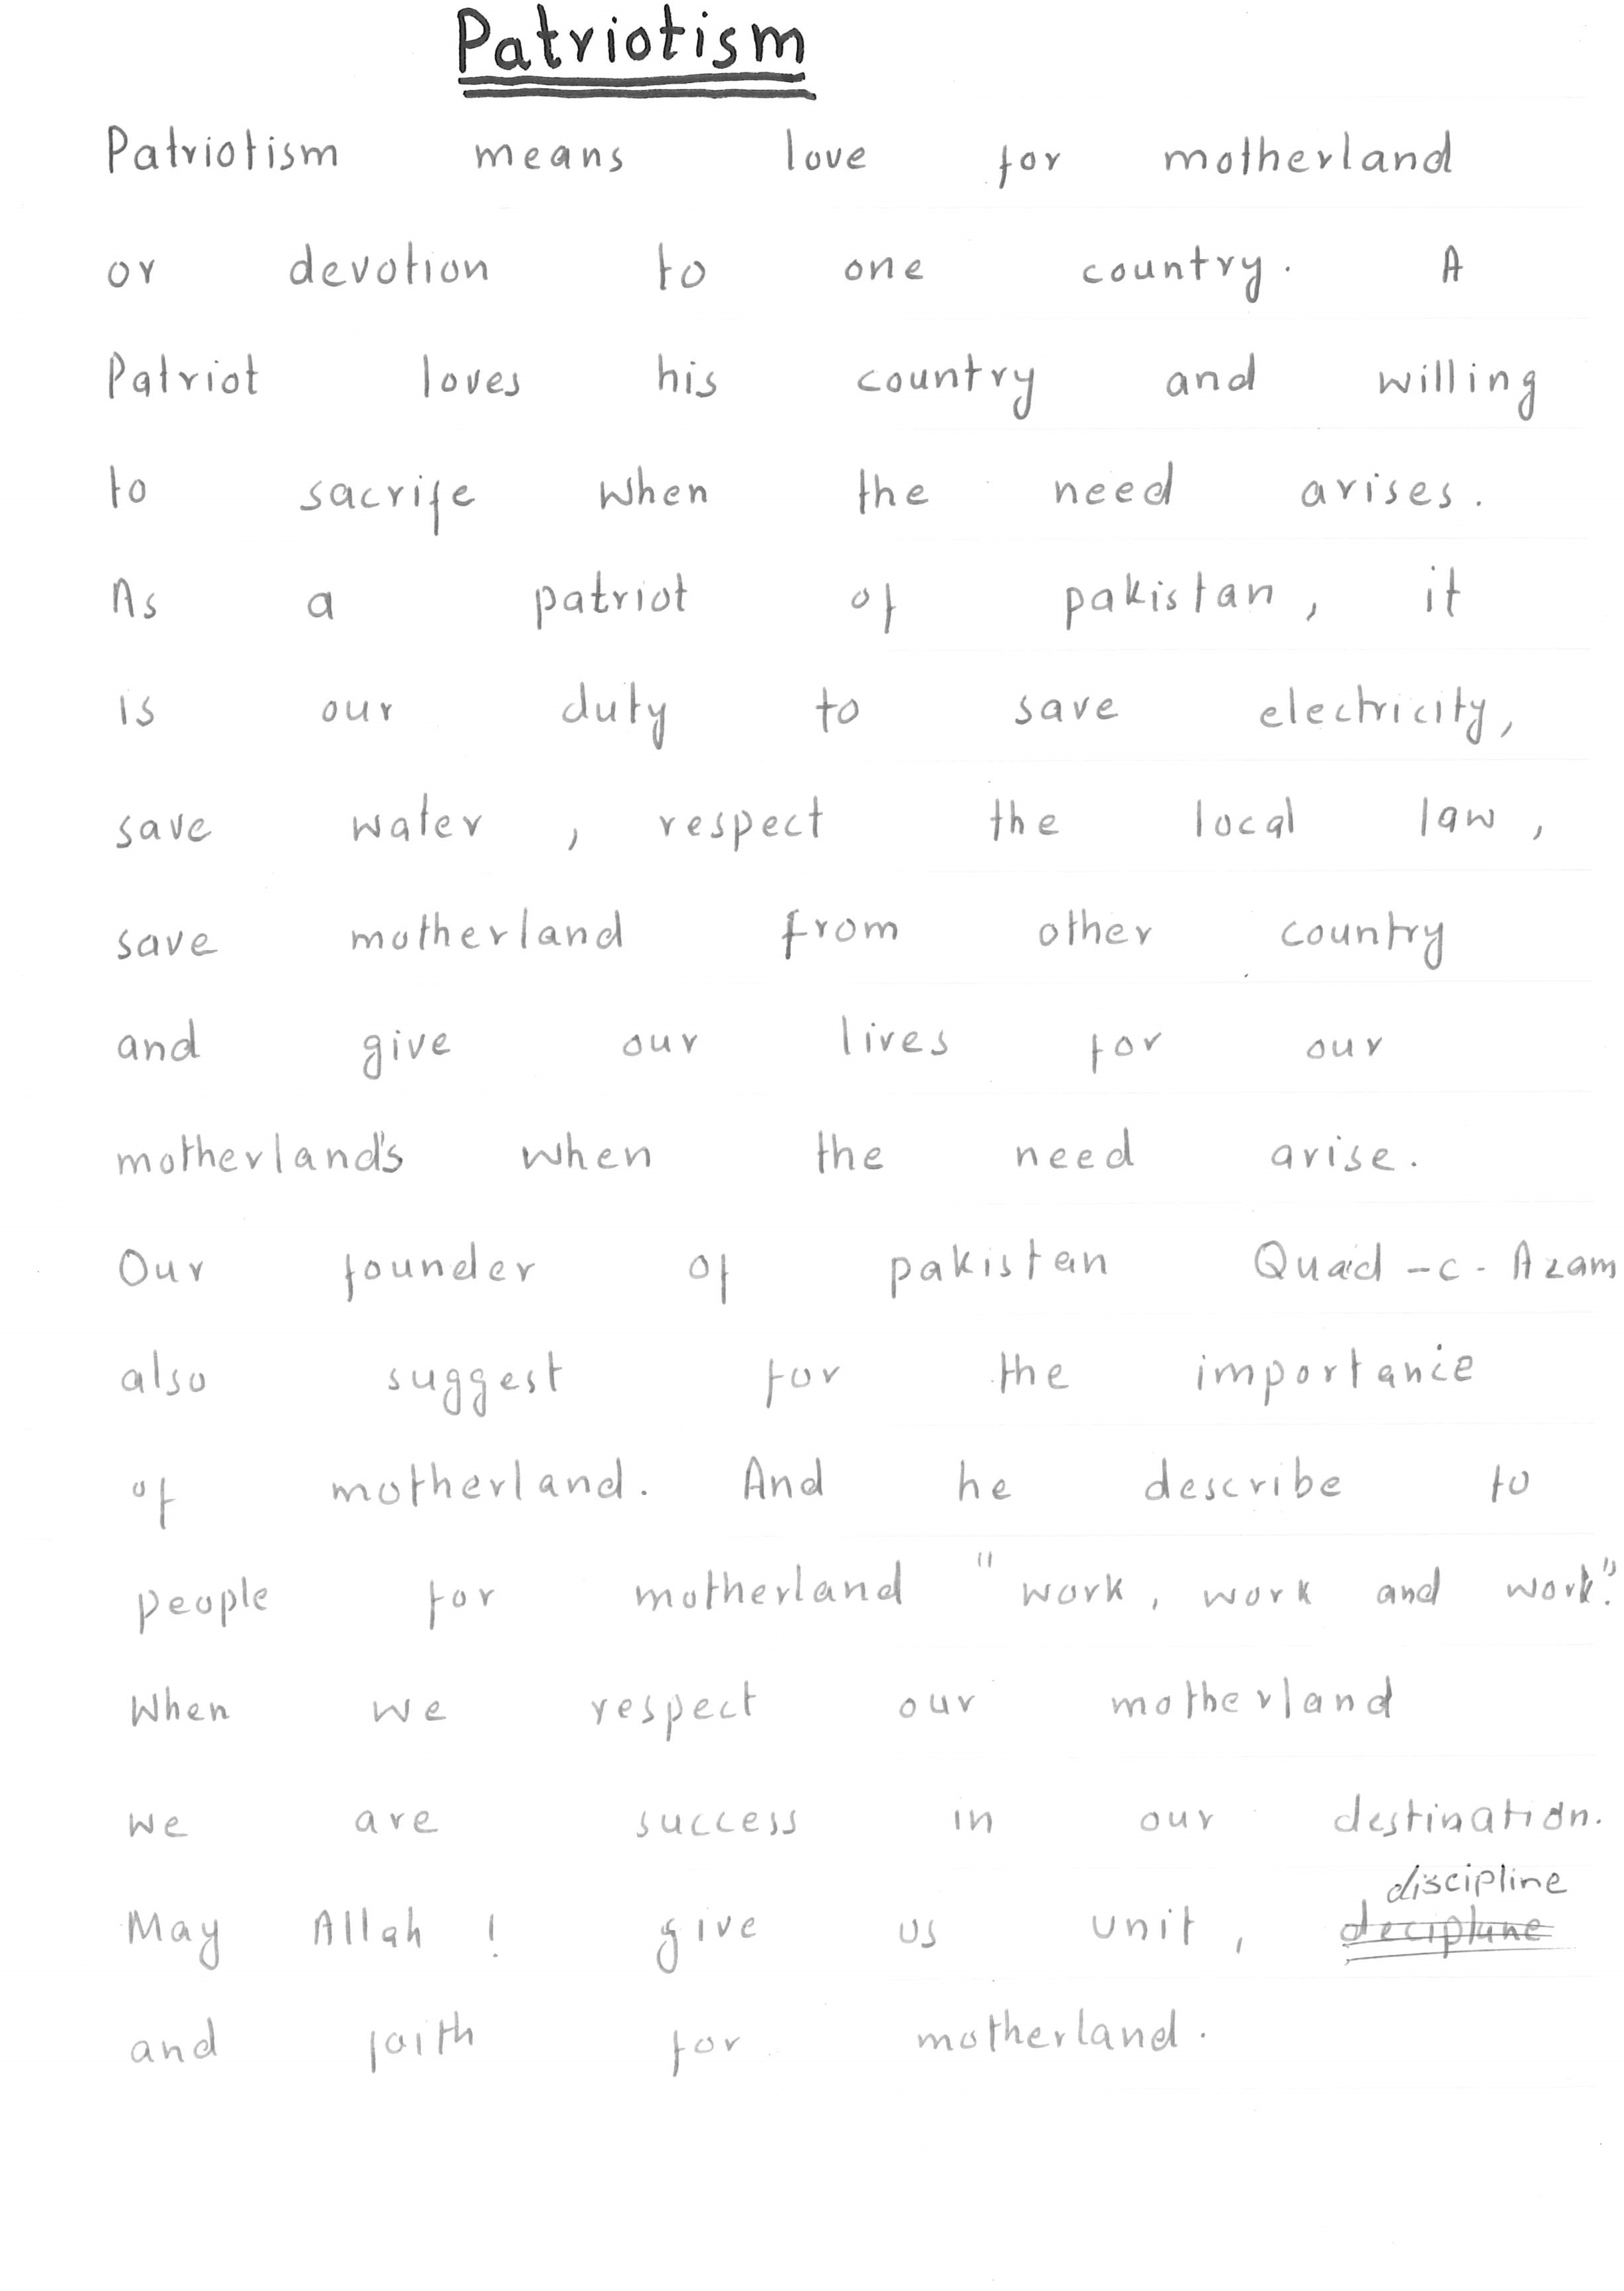 Patriotism
Patriotism means love for motherland
or devotion to one country. A
Patriot loves his country and willing
to sacrife when the need arises.
As a patriot of pakistan, it
is our duty to save electricity,
save water, respect the local law,
save motherland from other country
and give our lives for our
motherland's when the need arise.
Our founder of pakistan Quaid-e-Azam
also suggest for the importance
of motherland. And he describe to
people for motherland "work, work and work".
When we respect our motherland
we are success in our destination.
discipline
May Allah! give us unit, decipline
and faith for motherland.